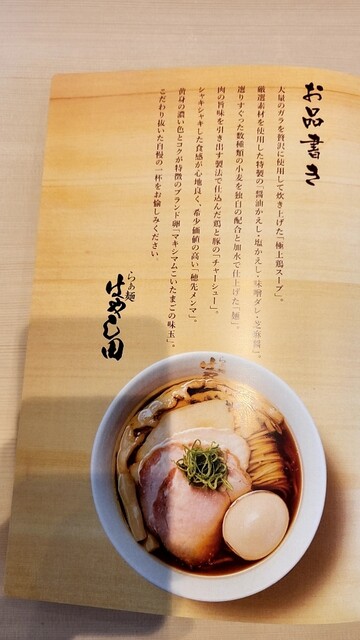 お品書き
大量のガラを贅沢に使用して炊き上げた「極上鶏スープ」。
厳選素材を使用した特製の「醤油かえし・塩かえし・味噌ダレ・芝麻醤」。
選りすぐった数種類の小麦を独自の配合と加水で仕上げた「麺」。
肉の旨味を引き出す製法で仕込んだ鶏と豚の「チャーシュー」。
シャキシャキした食感が心地良く、希少価値の高い「穂先メンマ」。
黄身の濃い色とコクが特徴のブランド卵「マキシマムこいたまごの味玉」。
こだわり抜いた自慢の一杯をお愉しみください。
らぁ麺
はやし田